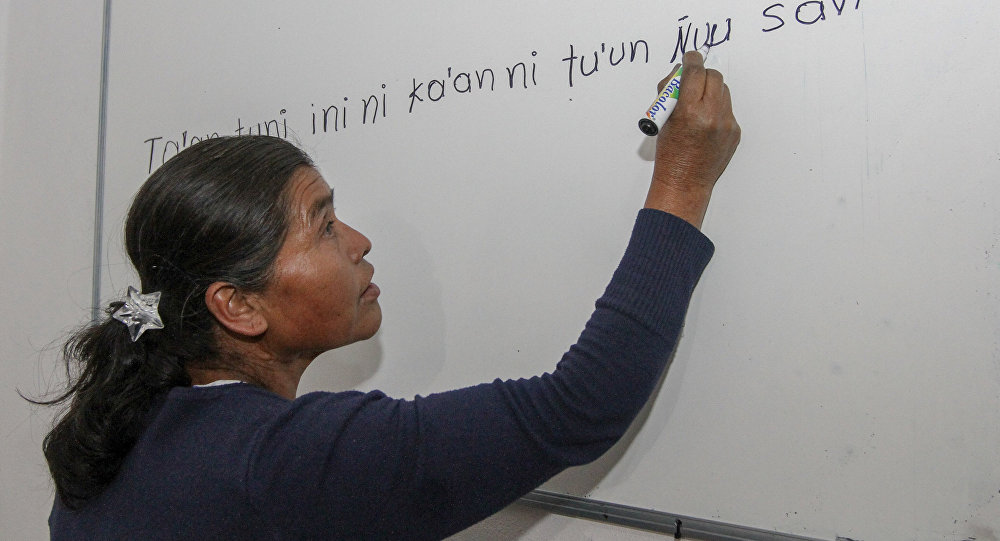 Ta'an tuni ini ni ka'an ni tu'un Ñuu savi
Bacolor